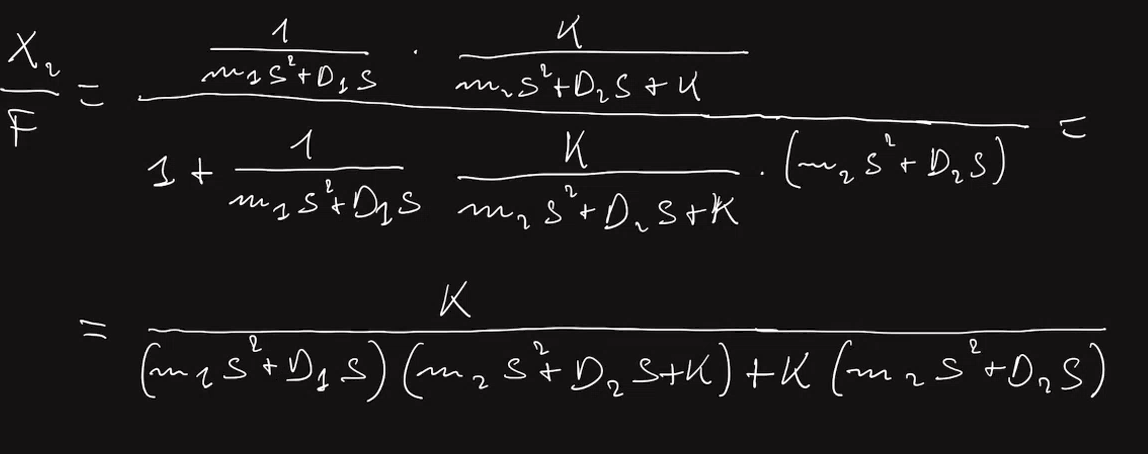 X₂/F = (1/(m₁s²+D₁s) · K/(m₂s²+D₂s+K)) / (1 + 1/(m₁s²+D₁s) K/(m₂s²+D₂s+K) · (m₂s²+D₂s)) =
= K / ((m₁s²+D₁s)(m₂s²+D₂s+K)+K(m₂s²+D₂s))